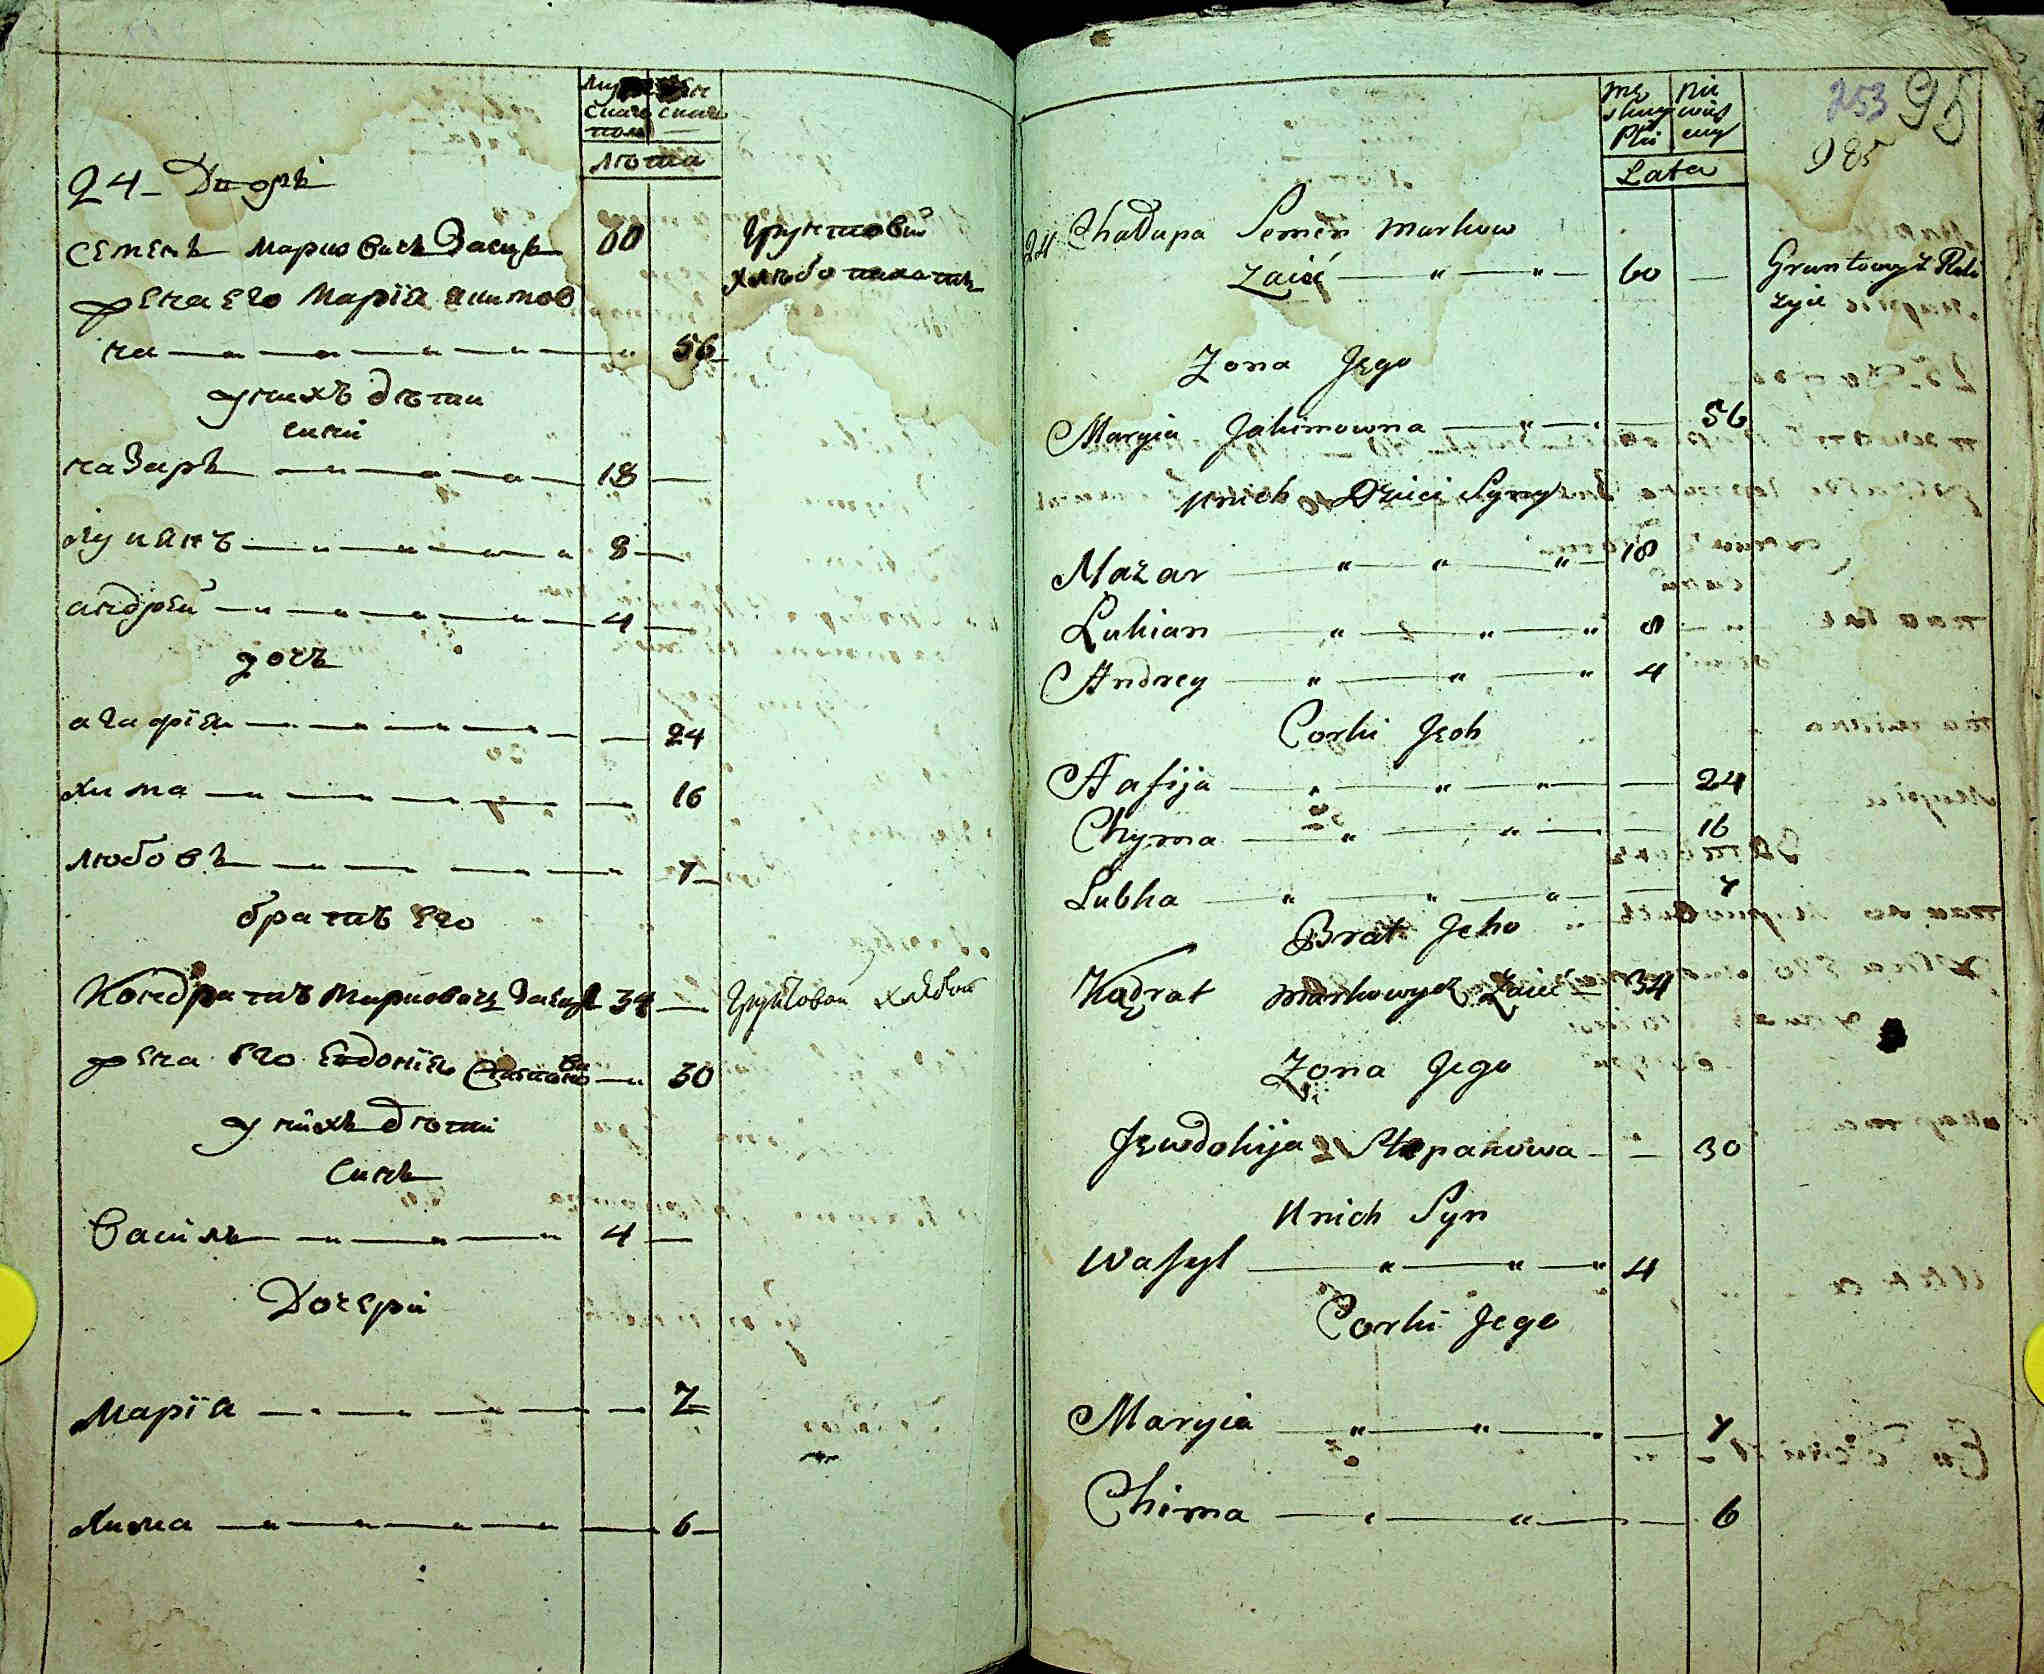 лѣта
24 - Дворъ
семенъ Марковичъ Заецъ 60 грунтовий
хлѣбопахатнъ
жена его Марія якимов
на 56
у нихъ дѣти
сини
назаръ 18
лукянъ 8
андрей 4
дочь
агафія 24
хима 16
любовъ 7
братъ его
Кондратъ Марковичъ Заецъ 34 грунтовой хлѣбоп
жена его Евдокія Степанова 30
у нихъ дѣти
синъ
Василь 4
Дочери
Марія 7
Хима 6
253 95
985
męskiey płci niewieściey
Lata
24 Chałupa Semen Markow
Zaiec 60 Gruntowy z Roli
żyie
Zona Jego
Maryia Jakimowna 56
Unich Dzieci Syny
Nazar 18
Lukian 8
Andrey 4
Corki Jeoh
Hafija 24
Chyma 16
Lubka 7
Brat Jeho
Kądrat Markowycz Zaiec 34
Zona Jego
Jewdokija Stepanowa 30
Unich Syn
Wasyl 4
Corki Jego
Maryia 7
Chima 6